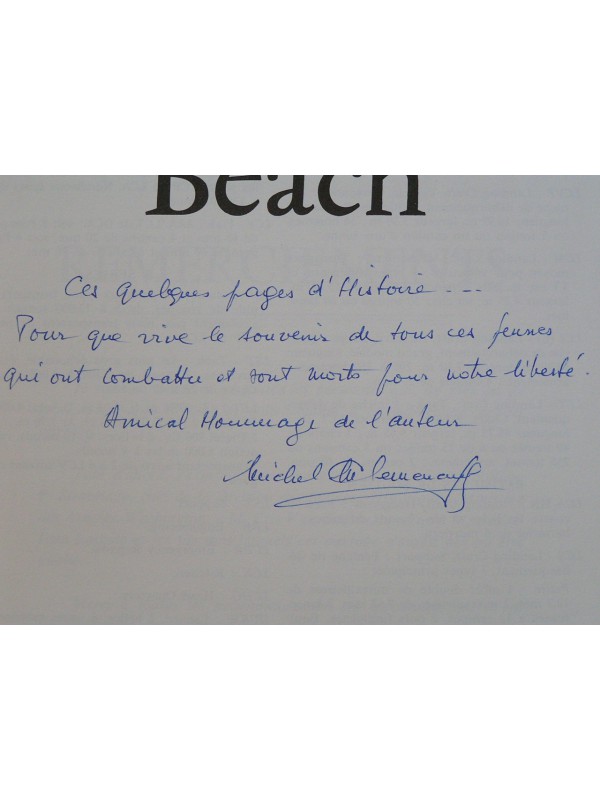 Beach
Ces quelques pages d'Histoire - - -
Pour que vive le souvenir de tous ces jeunes
qui ont combattu et sont morts pour notre liberté.
Amical Hommage de l'auteur
Michel